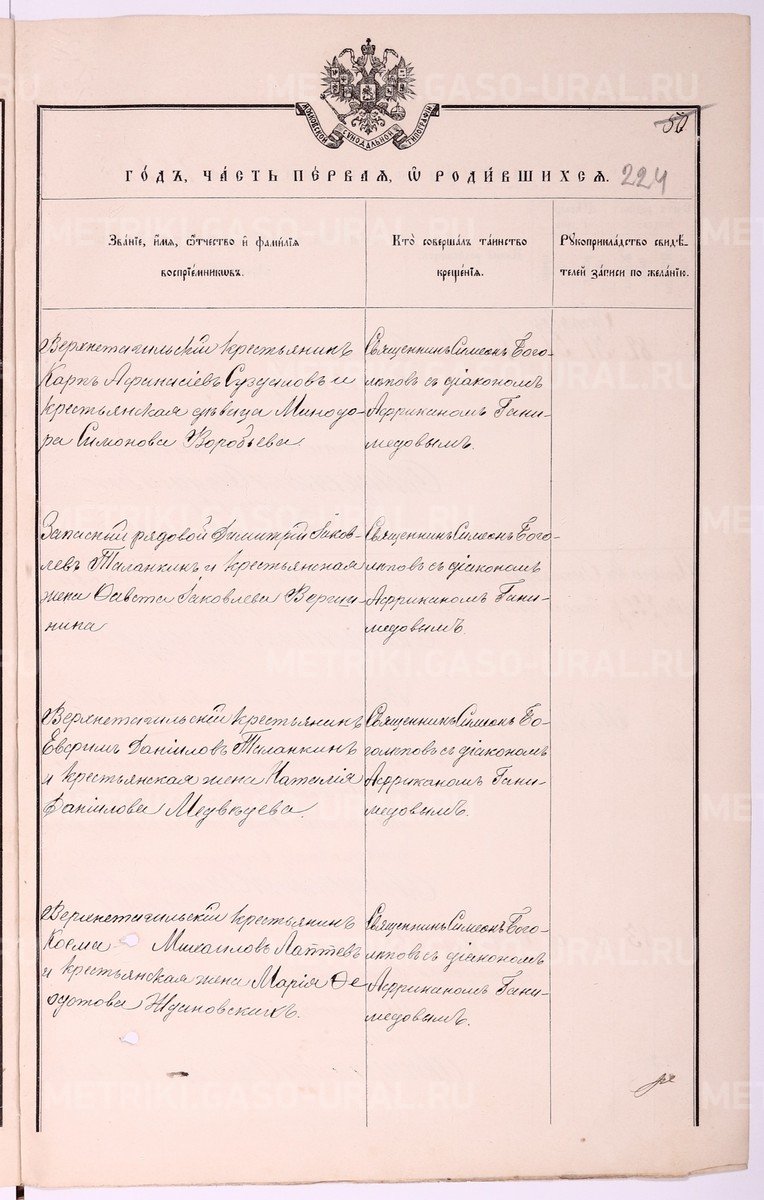 МОСКОВСКОЙ СѴНОДАЛЬНОЙ ТИПОГРАФІИ
50
ГО́ДЪ, ЧА́СТЬ ПЕ́РВАЯ, Ѽ РОДИ́ВШИХСЯ. 224
Зва́ніе, и́мя, ѻ҆́тчество и҆ фами́лія
воспріе́мниковъ.
Кто̀ соверша́лъ та́инство
креще́нія.
Рꙋкоприкла́дство свидѣ́-
телей за́писи по жела́нію.
Верхнетагильскій крестьянинъ
Карпъ Аѳанасіевъ Суздаловъ и
крестьянская дѣвица Минодо-
ра Симонова Воробьева
Священникъ Симеонъ Бого-
лѣповъ съ діакономъ
Африканомъ Гани-
медовымъ.
Запасный рядовой Димитрій Іаков-
левъ Таланкинъ и крестьянская
жена Фавста Іаковлева Верши-
нина
Священникъ Симеонъ Бого-
лѣповъ съ діакономъ
Африканомъ Гани-
медовымъ.
Верхнетагильскій крестьянинъ
Евфимъ Даніиловъ Таланкинъ
и крестьянская жена Наталія
Даніилова Медвѣдева.
Священникъ Симеонъ Бо-
голѣповъ съ діакономъ
Африканомъ Гани-
медовымъ.
Верхнетагильскій крестьянинъ
Косма Михаиловъ Лаптевъ
и крестьянская жена Марія Ѳе-
одотова Ждановскихъ.
Священникъ Симеонъ Бого-
лѣповъ съ діакономъ
Африканомъ Гани-
медовымъ.
METRIKI.GASO-URAL.RU